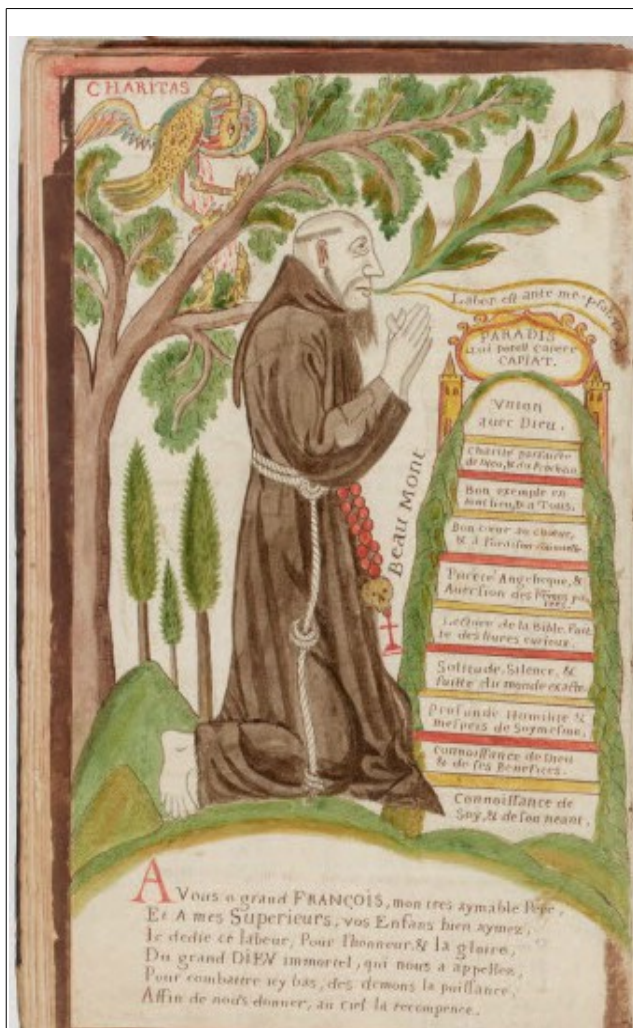 CHARITAS
Labor est ante me
PARADIS
qui potest capere
CAPIAT.
Vnion
auec Dieu.
Charité parfaicte
de Dieu, & du Prochain.
Bon exemple en
tout lieu, & a Tous.
Bon cœur au chœur,
& à l'oraison
Pureté Angelique, &
Auersion des
Lecture de la Bible, fuit
te des liures curieux.
Solitude, Silence, &
fuitte du monde exacte.
Profonde Humilité &
mespris de Soymesme.
Connoissance de Dieu
& de ses Benefices.
Connoissance de
Soy, & de son neant.
Beau Mont
A Vous o grand FRANÇOIS, mon tres aymable Pere,
Et A mes Superieurs, vos Enfans bien aymez,
Ie dedie ce labeur, Pour l'honneur & la gloire,
Du grand DIEV immortel, qui nous a appellez,
Pour combattre icy bas, des demons la puissance,
Affin de nous donner, au ciel la recompence.